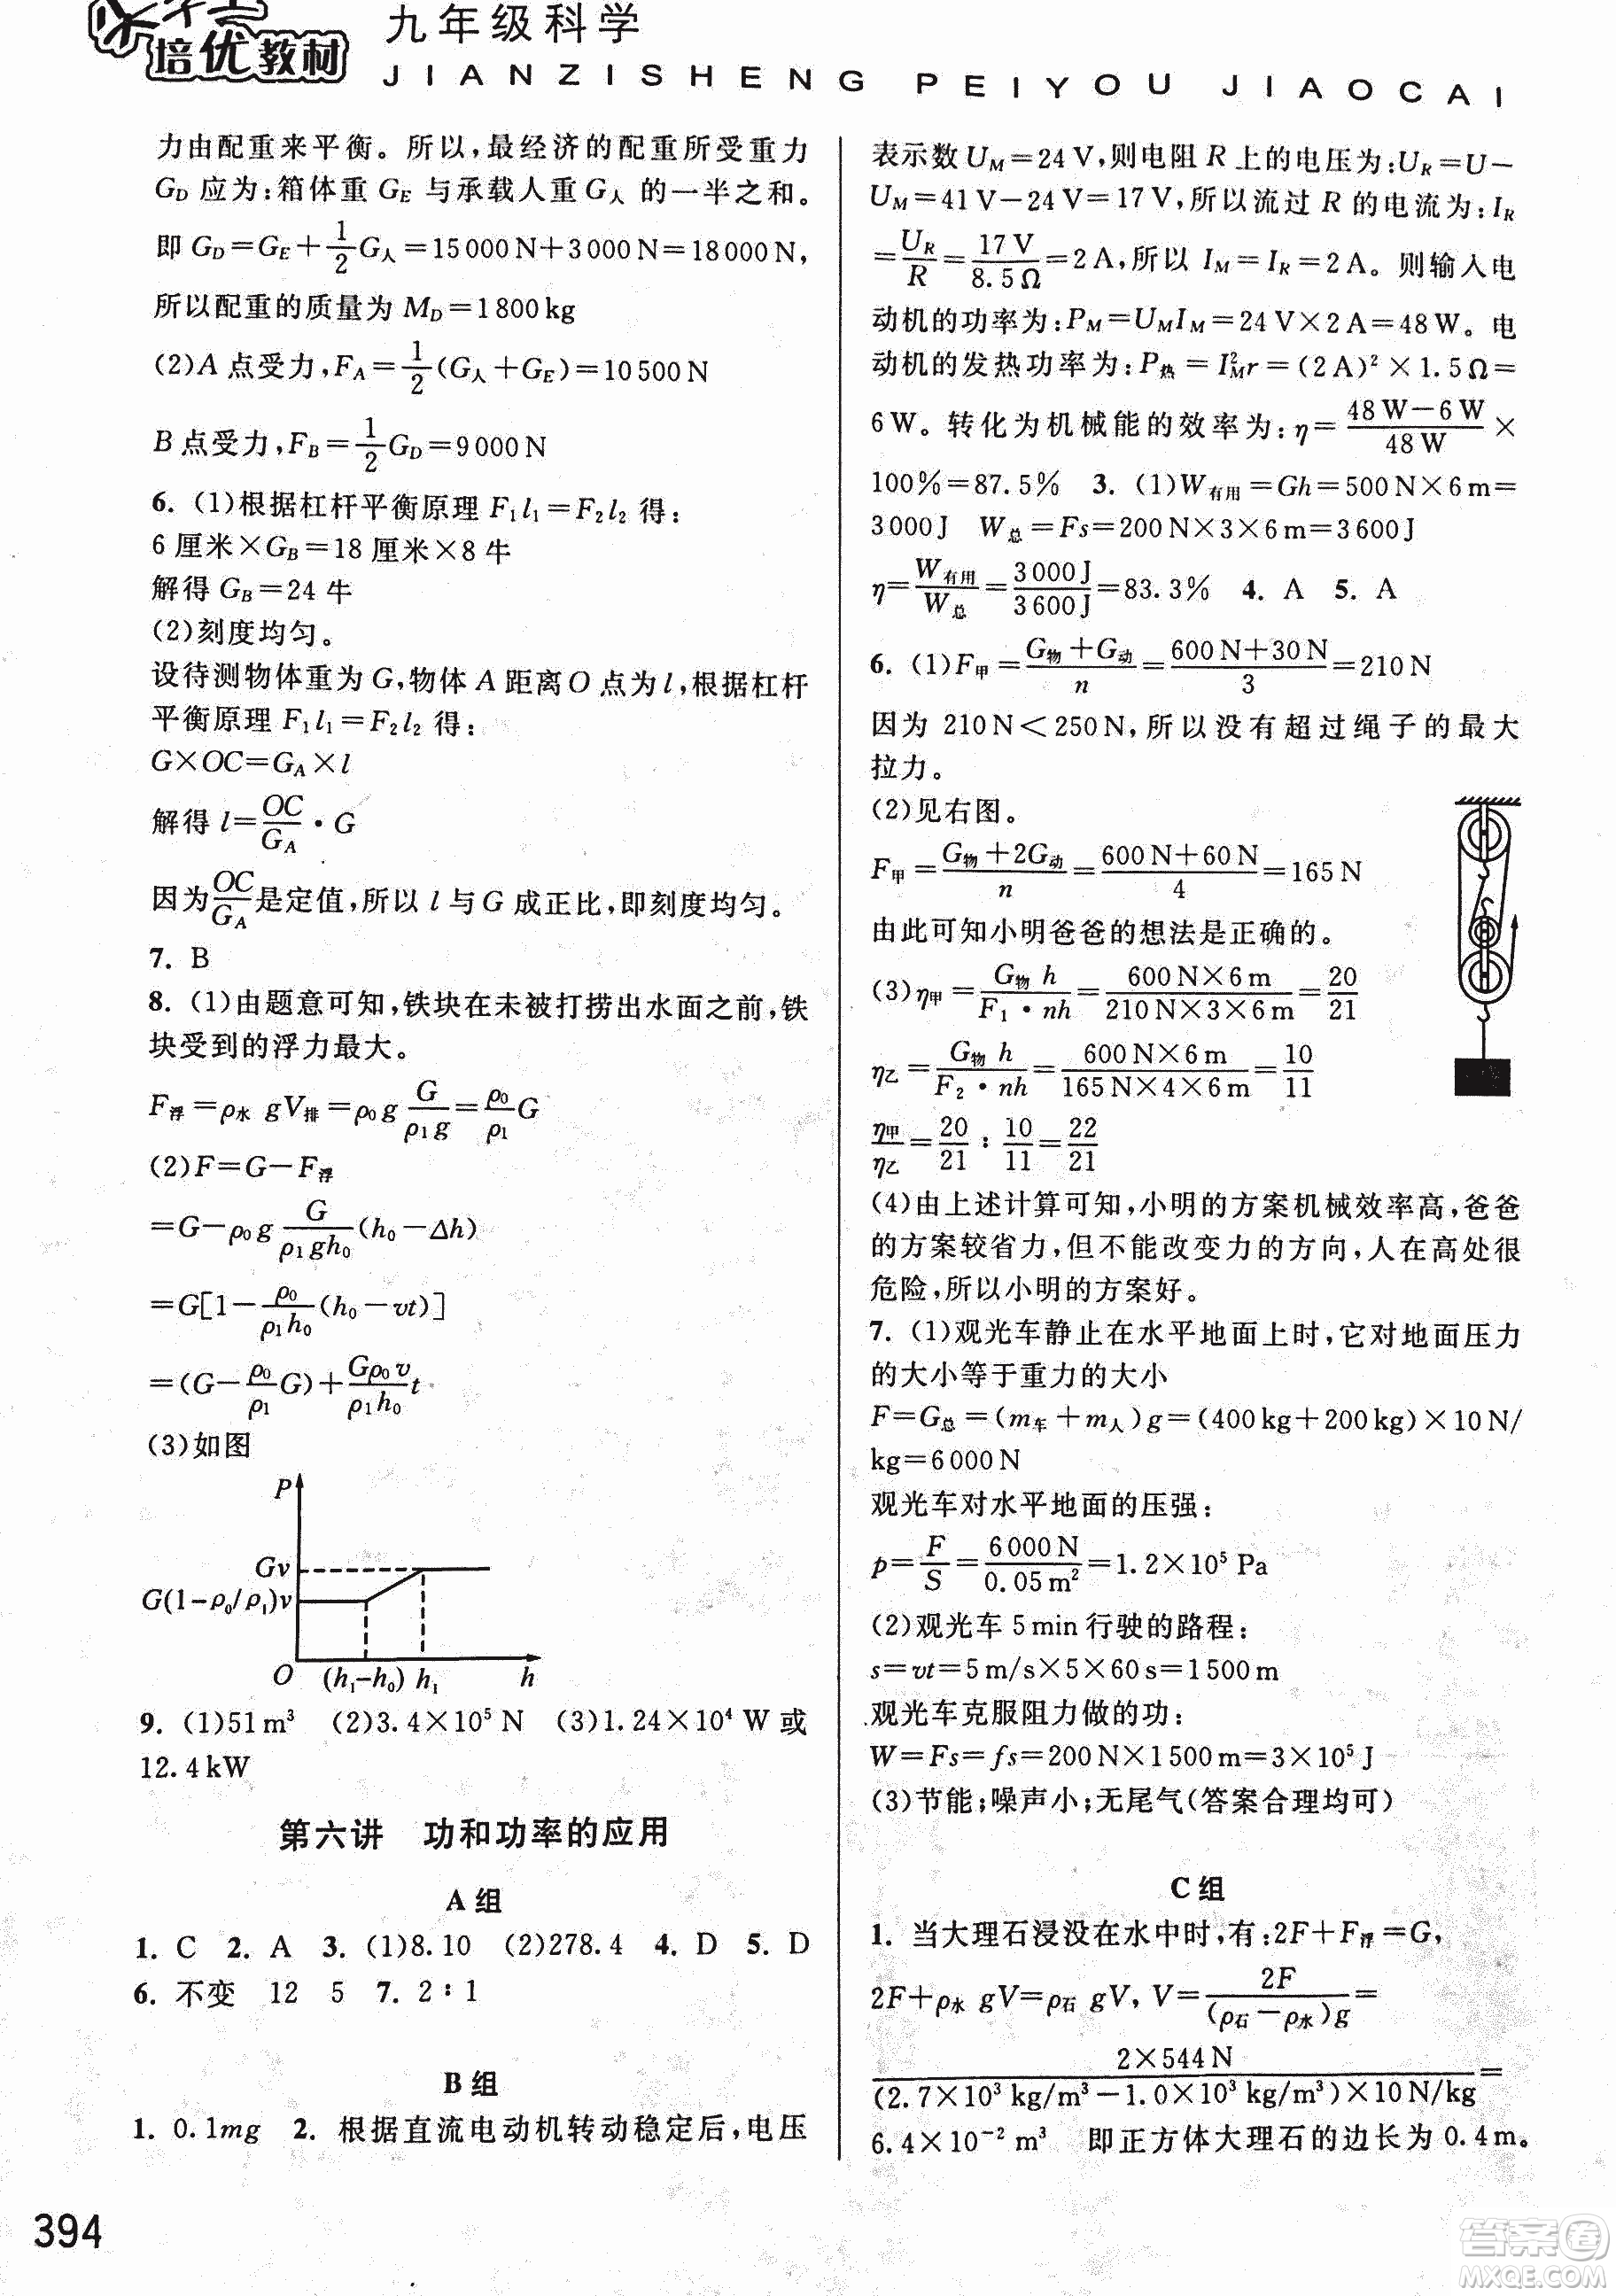 培优教材
九年级科学
JIANZISHENG PEIYOU JIAOCAI
力由配重来平衡。所以,最经济的配重所受重力
G_D 应为:箱体重 G_E 与承载人重 G_人 的一半之和。
即 G_D=G_E+1/2 G_人=15000N+3000N=18000N,
所以配重的质量为 M_D=1800kg
(2)A 点受力,F_A=1/2(G_人+G_E)=10500N
B 点受力,F_B=1/2 G_D=9000N
6. (1)根据杠杆平衡原理 F₁l₁=F₂l₂ 得:
6 厘米×G_B=18 厘米×8 牛
解得 G_B=24 牛
(2)刻度均匀。
设待测物体重为 G,物体 A 距离 O 点为 l,根据杠杆
平衡原理 F₁l₁=F₂l₂ 得:
G×OC=G_A×l
解得 l=OC/G_A·G
因为 OC/G_A 是定值,所以 l 与 G 成正比,即刻度均匀。
7. B
8. (1)由题意可知,铁块在未被打捞出水面之前,铁
块受到的浮力最大。
F_浮=ρ_水 gV_排=ρ₀g G/(ρ₁g)=ρ₀/ρ₁ G
(2)F=G-F_浮
=G-ρ₀g G/(ρ₁gh₀)(h₀-Δh)
=G[1-ρ₀/(ρ₁h₀)(h₀-vt)]
=(G-ρ₀/ρ₁ G)+Gρ₀v/(ρ₁h₀) t
(3)如图
P
Gv
G(1-ρ₀/ρ₁)v
O (h₁-h₀) h₁ h
9. (1)51m³ (2)3.4×10⁵N (3)1.24×10⁴W 或
12.4kW
第六讲 功和功率的应用
A 组
1. C 2. A 3. (1)8.10 (2)278.4 4. D 5. D
6. 不变 12 5 7. 2∶1
B 组
1. 0.1mg 2. 根据直流电动机转动稳定后,电压
394
表示数 U_M=24V,则电阻 R 上的电压为:U_R=U-
U_M=41V-24V=17V,所以流过 R 的电流为:I_R
=U_R/R=17V/8.5Ω=2A,所以 I_M=I_R=2A。则输入电
动机的功率为:P_M=U_M I_M=24V×2A=48W。电
动机的发热功率为:P_热=I²_M r=(2A)²×1.5Ω=
6W。转化为机械能的效率为:η=(48W-6W)/48W×
100%=87.5% 3. (1)W_有用=Gh=500N×6m=
3000J W_总=Fs=200N×3×6m=3600J
η=W_有用/W_总=3000J/3600J=83.3% 4. A 5. A
6. (1)F_甲=(G_物+G_动)/n=(600N+30N)/3=210N
因为 210N<250N,所以没有超过绳子的最大
拉力。
(2)见右图。
F_甲=(G_物+2G_动)/n=(600N+60N)/4=165N
由此可知小明爸爸的想法是正确的。
(3)η_甲=G_物h/(F₁·nh)=600N×6m/(210N×3×6m)=20/21
η_乙=G_物h/(F₂·nh)=600N×6m/(165N×4×6m)=10/11
η_甲/η_乙=20/21∶10/11=22/21
(4)由上述计算可知,小明的方案机械效率高,爸爸
的方案较省力,但不能改变力的方向,人在高处很
危险,所以小明的方案好。
7. (1)观光车静止在水平地面上时,它对地面压力
的大小等于重力的大小
F=G_总=(m_车+m_人)g=(400kg+200kg)×10N/
kg=6000N
观光车对水平地面的压强:
p=F/S=6000N/0.05m²=1.2×10⁵Pa
(2)观光车 5min 行驶的路程:
s=vt=5m/s×5×60s=1500m
观光车克服阻力做的功:
W=Fs=fs=200N×1500m=3×10⁵J
(3)节能;噪声小;无尾气(答案合理均可)
C 组
1. 当大理石浸没在水中时,有:2F+F_浮=G,
2F+ρ_水 gV=ρ_石 gV, V=2F/((ρ_石-ρ_水)g)=
2×544N/((2.7×10³kg/m³-1.0×10³kg/m³)×10N/kg)=
6.4×10⁻²m³ 即正方体大理石的边长为 0.4m。
答案圈
MXQE.COM